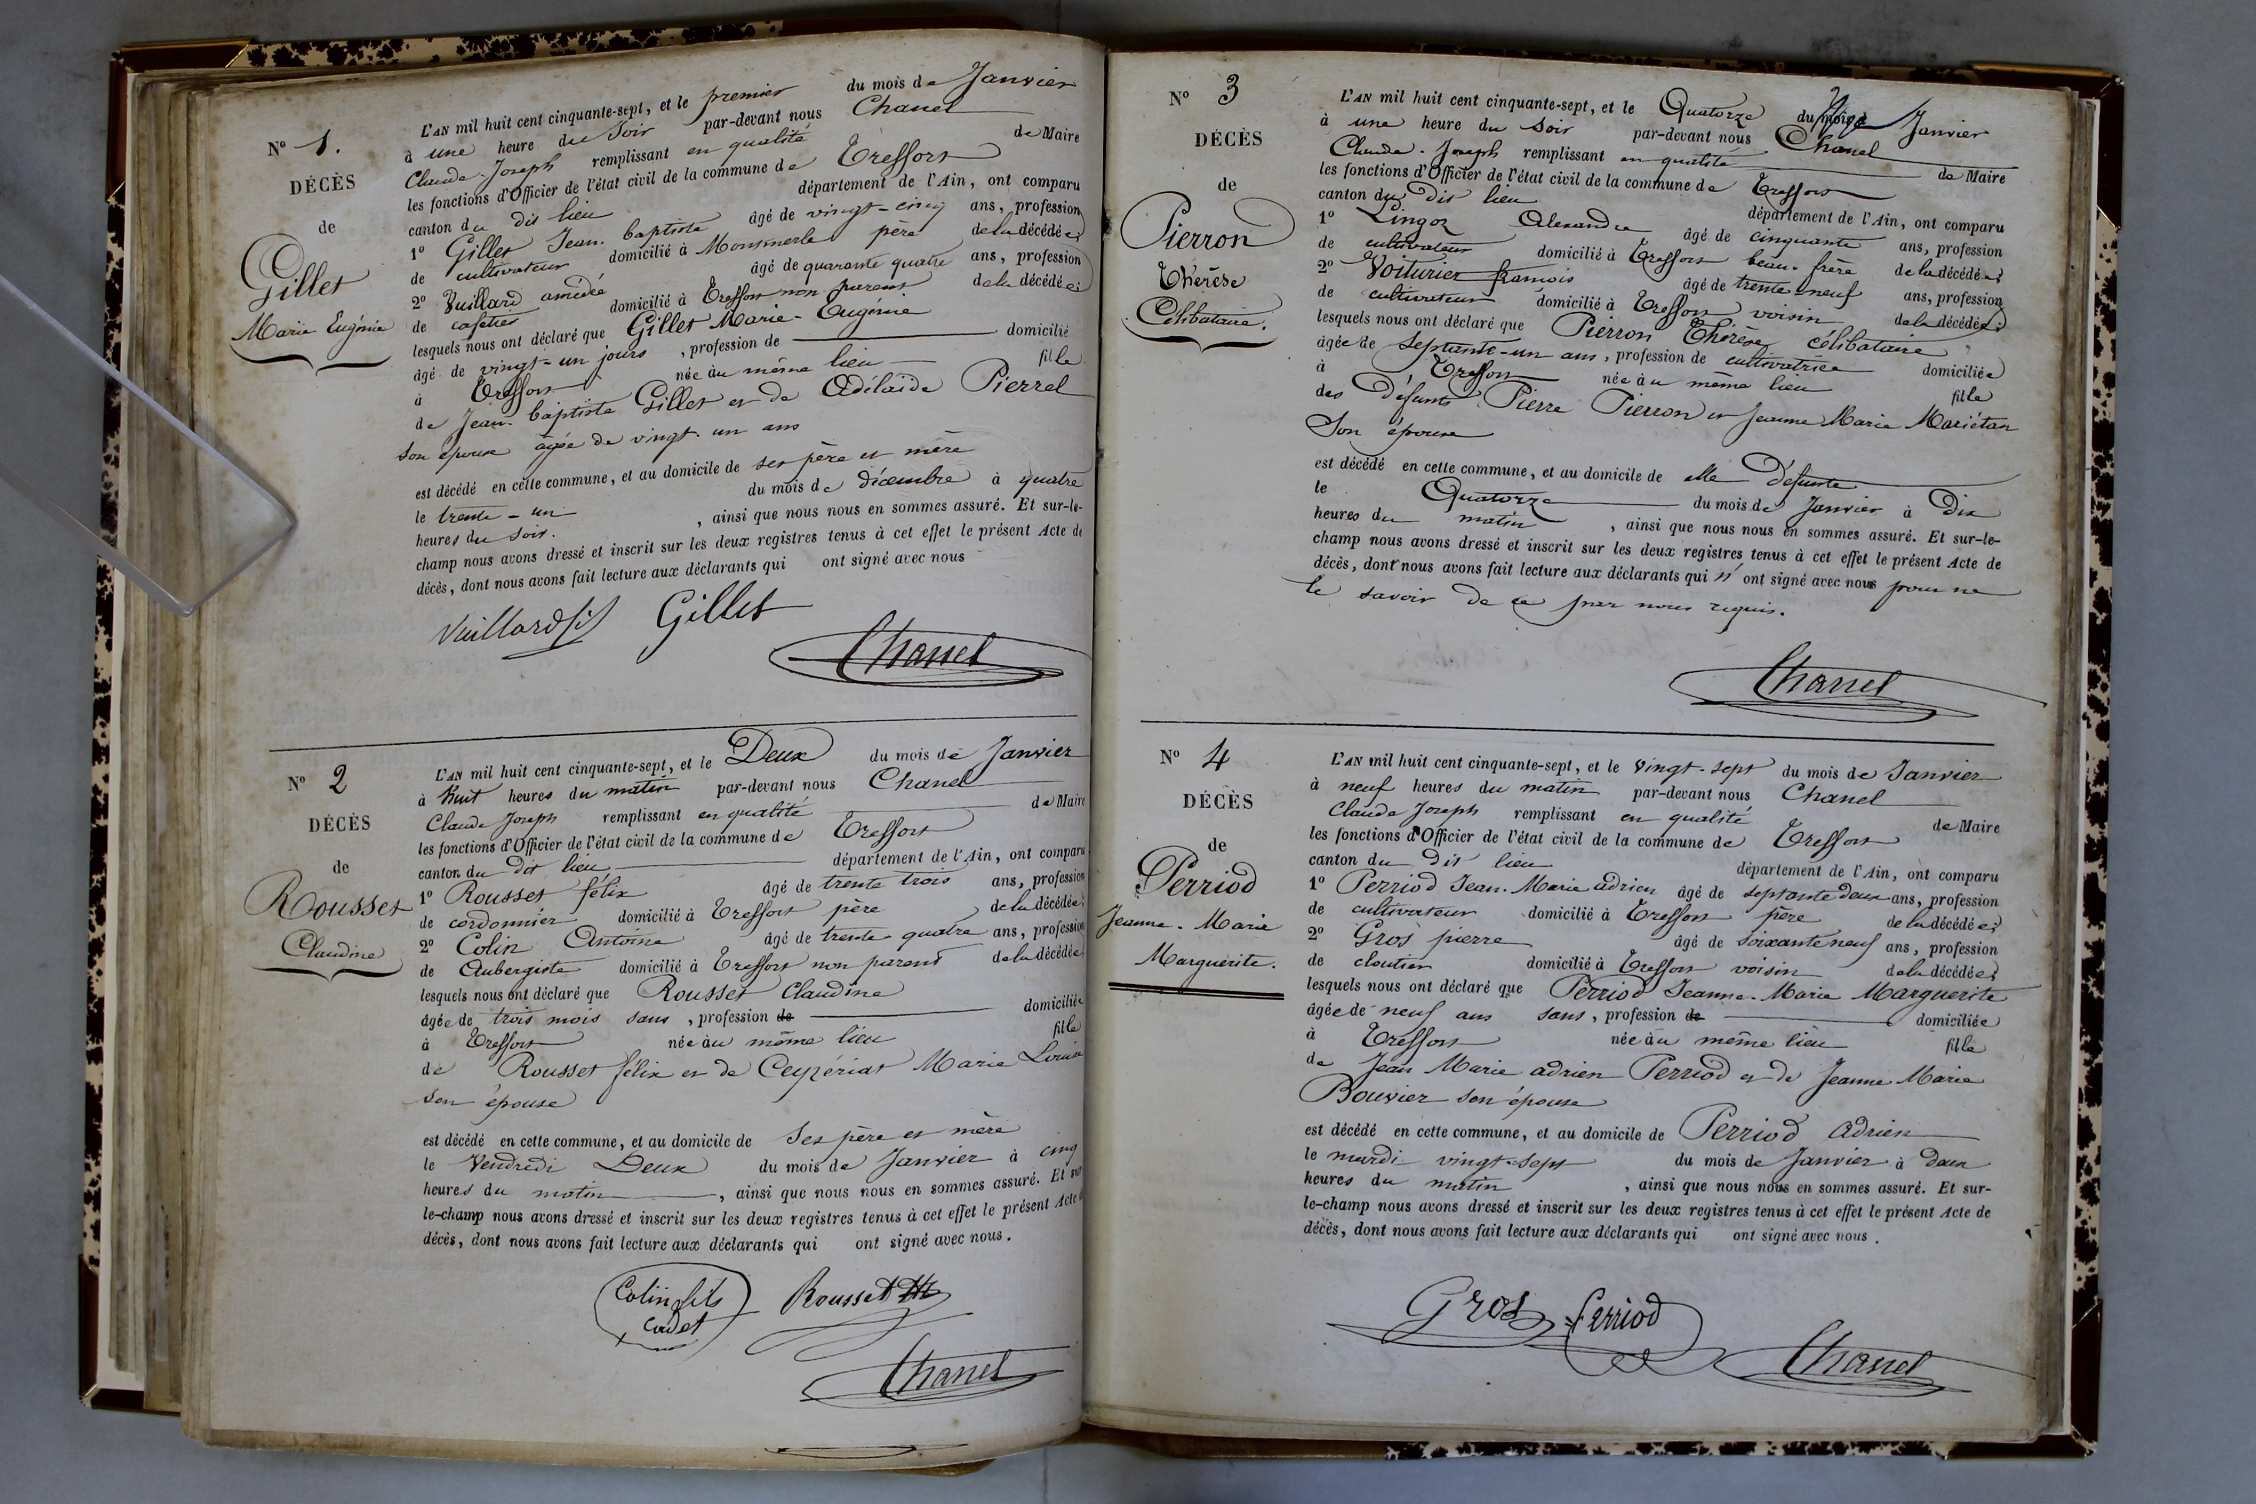 Nº 1.
DÉCÈS
de
Gillet
Marie Eugénie
L'AN mil huit cent cinquante-sept, et le premier du mois de Janvier
à une heure du Soir par-devant nous Chanel
Claude-Joseph remplissant en qualité de Maire
les fonctions d'Officier de l'état civil de la commune de Treffort
canton du dit lieu département de l'Ain, ont comparu
1º Gillet Jean-baptiste âgé de vingt-cinq ans, profession
de cultivateur domicilié à Montmerle père de la décédée;
2º Vuillard amédé âgé de quarante quatre ans, profession
de cafetier domicilié à Treffort non parent de la décédée;
lesquels nous ont déclaré que Gillet Marie-Eugénie
âgé de vingt-un jours, profession de domicilié
à Treffort née au même lieu fille
de Jean-baptiste Gillet et de Adélaïde Pierrel
son épouse âgée de vingt-un ans
est décédé en cette commune, et au domicile de ses père et mère
le trente-un du mois de décembre à quatre
heures du soir. , ainsi que nous nous en sommes assuré. Et sur-le-
champ nous avons dressé et inscrit sur les deux registres tenus à cet effet le présent Acte de
décès, dont nous avons fait lecture aux déclarants qui ont signé avec nous
Vuillard Gillet
Chanel
Nº 2
DÉCÈS
de
Rousset
Claudine
L'AN mil huit cent cinquante-sept, et le Deux du mois de Janvier
à huit heures du matin par-devant nous Chanel
Claude Joseph remplissant en qualité de Maire
les fonctions d'Officier de l'état civil de la commune de Treffort
canton du dit lieu département de l'Ain, ont comparu
1º Rousset félix âgé de trente trois ans, profession
de cordonnier domicilié à Treffort père de la décédée;
2º Colin Antoine âgé de trente quatre ans, profession
de Aubergiste domicilié à Treffort non parent de la décédée
lesquels nous ont déclaré que Rousset Claudine
âgée de trois mois sans, profession de domiciliée
à Treffort née au même lieu fille
de Rousset félix et de Ceyzériat Marie Louise
son épouse
est décédé en cette commune, et au domicile de Ses père et mère
le Vendredi Deux du mois de Janvier à cinq
heures du matin, ainsi que nous nous en sommes assuré. Et sur
le-champ nous avons dressé et inscrit sur les deux registres tenus à cet effet le présent Acte
décès, dont nous avons fait lecture aux déclarants qui ont signé avec nous.
Colin fils Rousset
cadet
Chanel
Nº 3
DÉCÈS
de
Pierron
Thérèse
Célibataire.
L'AN mil huit cent cinquante-sept, et le Quatorze du mois de Janvier
à une heure du soir par-devant nous Chanel
Claude-Joseph remplissant en qualité de Maire
les fonctions d'Officier de l'état civil de la commune de Treffort
canton du dit lieu département de l'Ain, ont comparu
1º Lingoz Alexandre âgé de cinquante ans, profession
de cultivateur domicilié à Treffort beau-frère de la décédée;
2º Voiturier francois âgé de trente-neuf ans, profession
de cultivateur domicilié à Treffort voisin de la décédée;
lesquels nous ont déclaré que Pierron Thérèse célibataire
âgée de septante-un ans, profession de cultivatrice domiciliée
à Treffort née au même lieu fille
des défunts Pierre Pierron et Jeanne Marie Mariétan
Son épouse
est décédé en cette commune, et au domicile de elle Défunte
le Quatorze du mois de Janvier à Dix
heures du matin, ainsi que nous nous en sommes assuré. Et sur-le-
champ nous avons dressé et inscrit sur les deux registres tenus à cet effet le présent Acte de
décès, dont nous avons fait lecture aux déclarants qui n'ont signé avec nous pour ne
le savoir de ce par nous requis.
Chanel
Nº 4
DÉCÈS
de
Perriod
Jeanne-Marie
Marguerite.
L'AN mil huit cent cinquante-sept, et le vingt-sept du mois de Janvier
à neuf heures du matin par-devant nous Chanel
Claude Joseph remplissant en qualité de Maire
les fonctions d'Officier de l'état civil de la commune de Treffort
canton du Dit lieu département de l'Ain, ont comparu
1º Perriod Jean-Marie adrien âgé de septante deux ans, profession
de cultivateur domicilié à Treffort père de la décédée;
2º Gros pierre âgé de soixante neuf ans, profession
de cloutier domicilié à Treffort voisin de la décédée;
lesquels nous ont déclaré que Perriod Jeanne-Marie Marguerite
âgée de neuf ans sans, profession de domiciliée
à Treffort née au même lieu fille
de Jean Marie adrien Perriod et de Jeanne Marie
Bouvier son épouse
est décédé en cette commune, et au domicile de Perriod adrien
le mardi vingt-sept du mois de Janvier à deux
heures du matin, ainsi que nous nous en sommes assuré. Et sur-
le-champ nous avons dressé et inscrit sur les deux registres tenus à cet effet le présent Acte de
décès, dont nous avons fait lecture aux déclarants qui ont signé avec nous.
Gros Perriod
Chanel